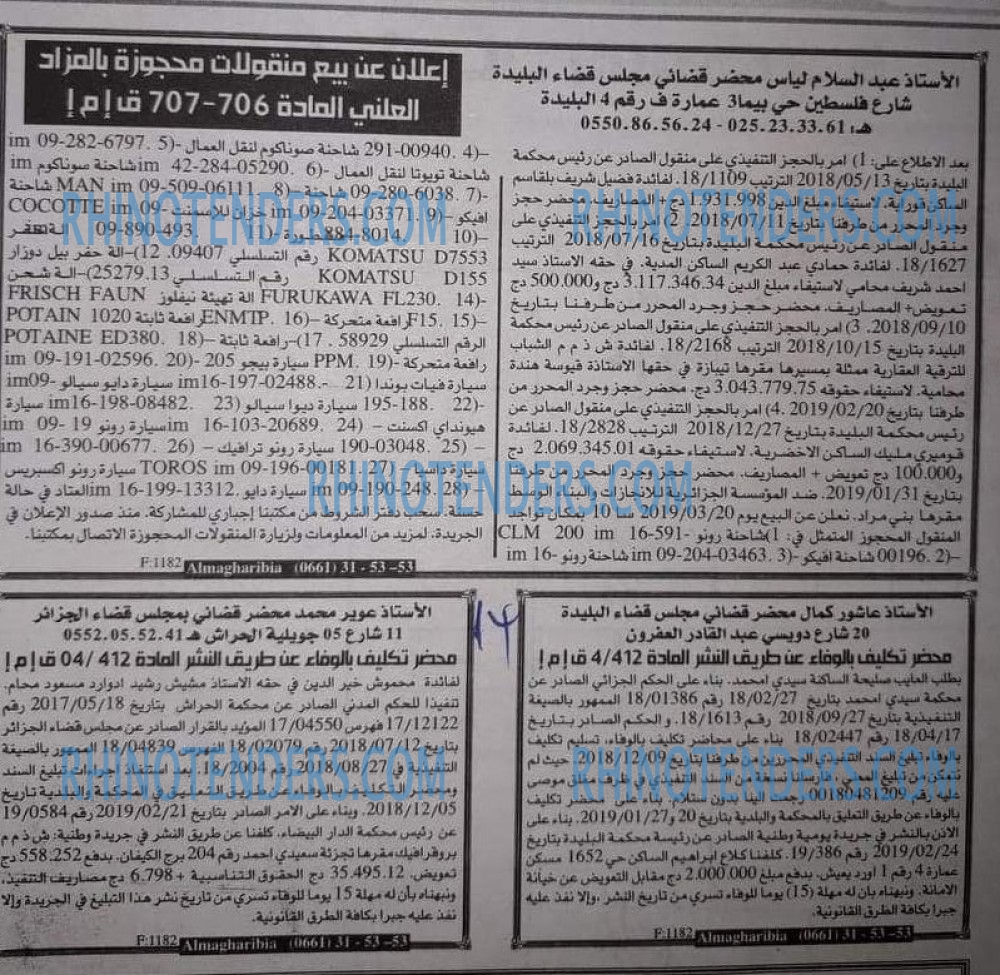 الأستاذ عبد السلام لياس محضر قضائي مجلس قضاء البليدة
شارع فلسطين حي بيما3 عمارة ف رقم 4 البليدة
هـ: 025.23.33.61 - 0550.86.56.24
بعد الاطلاع على: 1) امر بالحجز التنفيذي على منقول الصادر عن رئيس محكمة
البليدة بتاريخ 2018/05/13 الترتيب 18/1109. لفائدة فضيل شريف بلقاسم
الساكن قواوية. لاستيفاء مبلغ الدين 1.931,998 دج+ المصاريف. محضر حجز
وجرد المحرر من طرفنا بتاريخ 2018/07/11. 2) امر بالحجز التنفيذي على
منقول الصادر عن رئيس محكمة البليدة بتاريخ 2018/07/16 الترتيب
18/1627. لفائدة حمادي عبد الكريم الساكن المدية. في حقه الاستاذ سيد
احمد شريف محامي لاستيفاء مبلغ الدين 3.117.346.34 دج و500.000 دج
تعويض+ المصاريف. محضر حجز وجرد المحرر من طرفنا بتاريخ
2018/09/10. 3) امر بالحجز التنفيذي على منقول الصادر عن رئيس محكمة
البليدة بتاريخ 2018/10/15 الترتيب 18/2168. لفائدة ش ذ م م الشباب
للترقية العقارية ممثلة بمسيرها مقرها تيبازة في حقها الاستاذة قيوسة هندة
محامية. لاستيفاء حقوقه 3.043.779.75 دج. محضر حجز وجرد المحرر من
طرفنا بتاريخ 2019/02/20. 4) امر بالحجز التنفيذي على منقول الصادر عن
رئيس محكمة البليدة بتاريخ 2018/12/27 الترتيب 18/2828. لفائدة
قوميري مليك الساكن الاخضرية. لاستيفاء حقوقه 2.069.345.01 دج
و100.000 دج تعويض + المصاريف. محضر حجز وجرد المحرر من طرفنا
بتاريخ 2019/01/31. ضد المؤسسة الجزائرية للانجازات والبناء الوسط
مقرها بني مراد. نعلن عن البيع يوم 2019/03/20 سا 10 بمكان تواجد
المنقول المحجوز المتمثل في: 1)شاحنة رونو CLM 200 im 16-591-
00196. 2)– شاحنة افيكو im 09-204-03463. 3)– شاحنة رونو im 16-
إعلان عن بيع منقولات محجوزة بالمزاد
العلني المادة 706-707 ق إ م إ
291-00940. 4)– شاحنة صوناكوم لنقل العمال im 09-282-6797. 5)–
شاحنة تويوتا لنقل العمال im 42-284-05290. 6)– شاحنة صوناكوم im
09-280-6038. 7)– شاحنة MAN im 09-509-06111. 8)– شاحنة
افيكو im 09-204-03371. 9)– خزان للاسمنت COCOTTE im 09-
884-8014. 10)– 09-890-493. 11)– الة حفر
KOMATSU D7553 رقم التسلسلي 09407. 12)–الة حفر بيل دوزار
KOMATSU D155 رقم التسلسلي 25279. 13)–الة شحن
FURUKAWA FL230. 14)– الة تهيئة نيفلوز FRISCH FAUN
F15. 15)–رافعة متحركة ENMTP. 16)–رافعة ثابتة POTAIN 1020
الرقم التسلسلي 58929. 17)– رافعة ثابتة POTAINE ED380. 18)–
رافعة متحركة PPM. 19)– سيارة بيجو 205 im 09-191-02596. 20)–
سيارة فيات بوندا im16-197-02488.- 21) سيارة دايو سيالو im09-
195-188. 22)– سيارة ديوا سيالو im16-198-08482. 23) سيارة
هيونداي اكسنت im 16-103-20689. 24) –سيارة رونو im 09- 19
190-03048. 25)– سيارة رونو ترافيك im 16-390-00677. 26)–
سيارة داسيا TOROS im 09-196-00181. 27) سيارة رونو اكسبريس
im 09-190-248. 28)– سيارة دايو im 16-199-13312.العتاد في حالة
سحب دفتر الشروط من مكتبنا إجباري للمشاركة. منذ صدور الإعلان في
الجريدة. لمزيد من المعلومات ولزيارة المنقولات المحجوزة الاتصال بمكتبنا.
F:1182 Almagharibia (0661) 31 - 53 -53
14
الأستاذ عاشور كمال محضر قضائي مجلس قضاء البليدة
20 شارع دويسي عبد القادر العفرون
محضر تكليف بالوفاء عن طريق النشر المادة 4/412 ق إ م إ
بطلب العايب صليحة الساكنة سيدي امحمد. بناء على الحكم الجزائي الصادر عن
محكمة سيدي امحمد بتاريخ 18/02/27 رقم 18/01386 الممهور بالصيغة
التنفيذية بتاريخ 2018/09/27 رقم 18/1613. و الحكم الصادر بتاريخ
18/04/17 رقم 18/02447 بناء على محاضر تكليف بالوفاء، تسليم تكليف
بالوفاء مبلغ السند التنفيذي المحررين من طرفنا بتاريخ 2018/12/09. حيث لم
نتمكن من تبليغ المعني. فارسلنا نسخة من السند التنفيذي في ظرف مغلق موصى
عليه رقم 00180481209 رجعت الينا بدون ستلام. بناء على محضر تكليف
بالوفاء عن طريق التعليق بالمحكمة والبلدية بتاريخ 20 و2019/01/27. بناء على
الاذن بالنشر في جريدة يومية وطنية الصادر عن رئيسة محكمة البليدة بتاريخ
2019/02/24 رقم 19/386. كلفنا كلاع ابراهيم الساكن حي 1652 مسكن
عمارة 4 رقم 1 اورد يعيش. بدفع مبلغ 2.000.000 دج مقابل التعويض عن خيانة
الامانة. ونبهناه بان له مهلة (15) يوما للوفاء تسري من تاريخ النشر .وإلا نفذ عليه
جبرا بكافة الطرق القانونية.
F:1182 Almagharibia (0661) 31 - 53 -53
الأستاذ عوير محمد محضر قضائي بمجلس قضاء الجزائر
11 شارع 05 جويلية الحراش هـ 0552.05.52.41
محضر تكليف بالوفاء عن طريق النشر المادة 412 /04 ق إ م إ
لفائدة محموش خير الدين في حقه الاستاذ مشيش رشيد ادوارد مسعود محام.
تنفيذا للحكم المدني الصادر عن محكمة الحراش بتاريخ 2017/05/18 رقم
17/12122 فهرس 17/04550 المؤيد بالقرار الصادر عن مجلس قضاء الجزائر
بتاريخ 2018/07/12 رقم 18/02079 الفهرس 18/04839 الممهور بالصيغة
التنفيذية في 2018/08/27 رقم 18/2004. بعد استنفاذ إجراءات تبليغ السند
2018/12/05. وبناء على الامر الصادر بتاريخ 2019/02/21 رقم 19/0584
عن رئيس محكمة الدار البيضاء. كلفنا عن طريق النشر في جريدة وطنية: ش ذ م م
بروفرافيك مقرها تجزئة سعيدي احمد رقم 204 برج الكيفان. بدفع 558.252 دج
تعويض. 35.495.12 دج الحقوق التناسبية + 6.798 دج مصاريف التنفيذ.
ونبهناه بان له مهلة 15 يوما للوفاء تسري من تاريخ نشر هذا التبليغ في الجريدة وإلا
نفذ عليه جبرا بكافة الطرق القانونية.
F:1182 Almagharibia (0661) 31 - 53 -53
RHINOTENDERS.COM
RHINOTENDERS.COM
RHINOTENDERS.COM
RHINOTENDERS.COM
RHINOTENDERS.COM